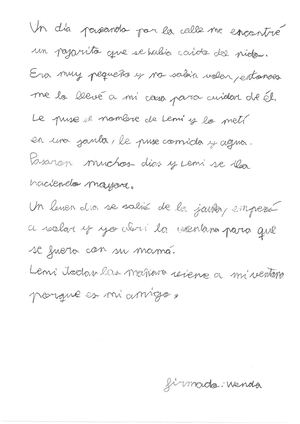 Un día paseando por la calle me encontré
un pajarito que se había caído del nido.
Era muy pequeño y no sabía volar, entonces
me lo llevé a mi casa para cuidar de él.
Le puse el nombre de Lemi y lo metí
en una jaula, le puse comida y agua.
Pasaron muchos dias y Lemi se iba
haciendo mayor.
Un buen dia se salió de la jaula, empezó
a volar y yo abrí la ventana para que
se fuera con su mamá.
Lemi todas las mañana viene a mi ventana
porque es mi amigo.
firmado: Wenda